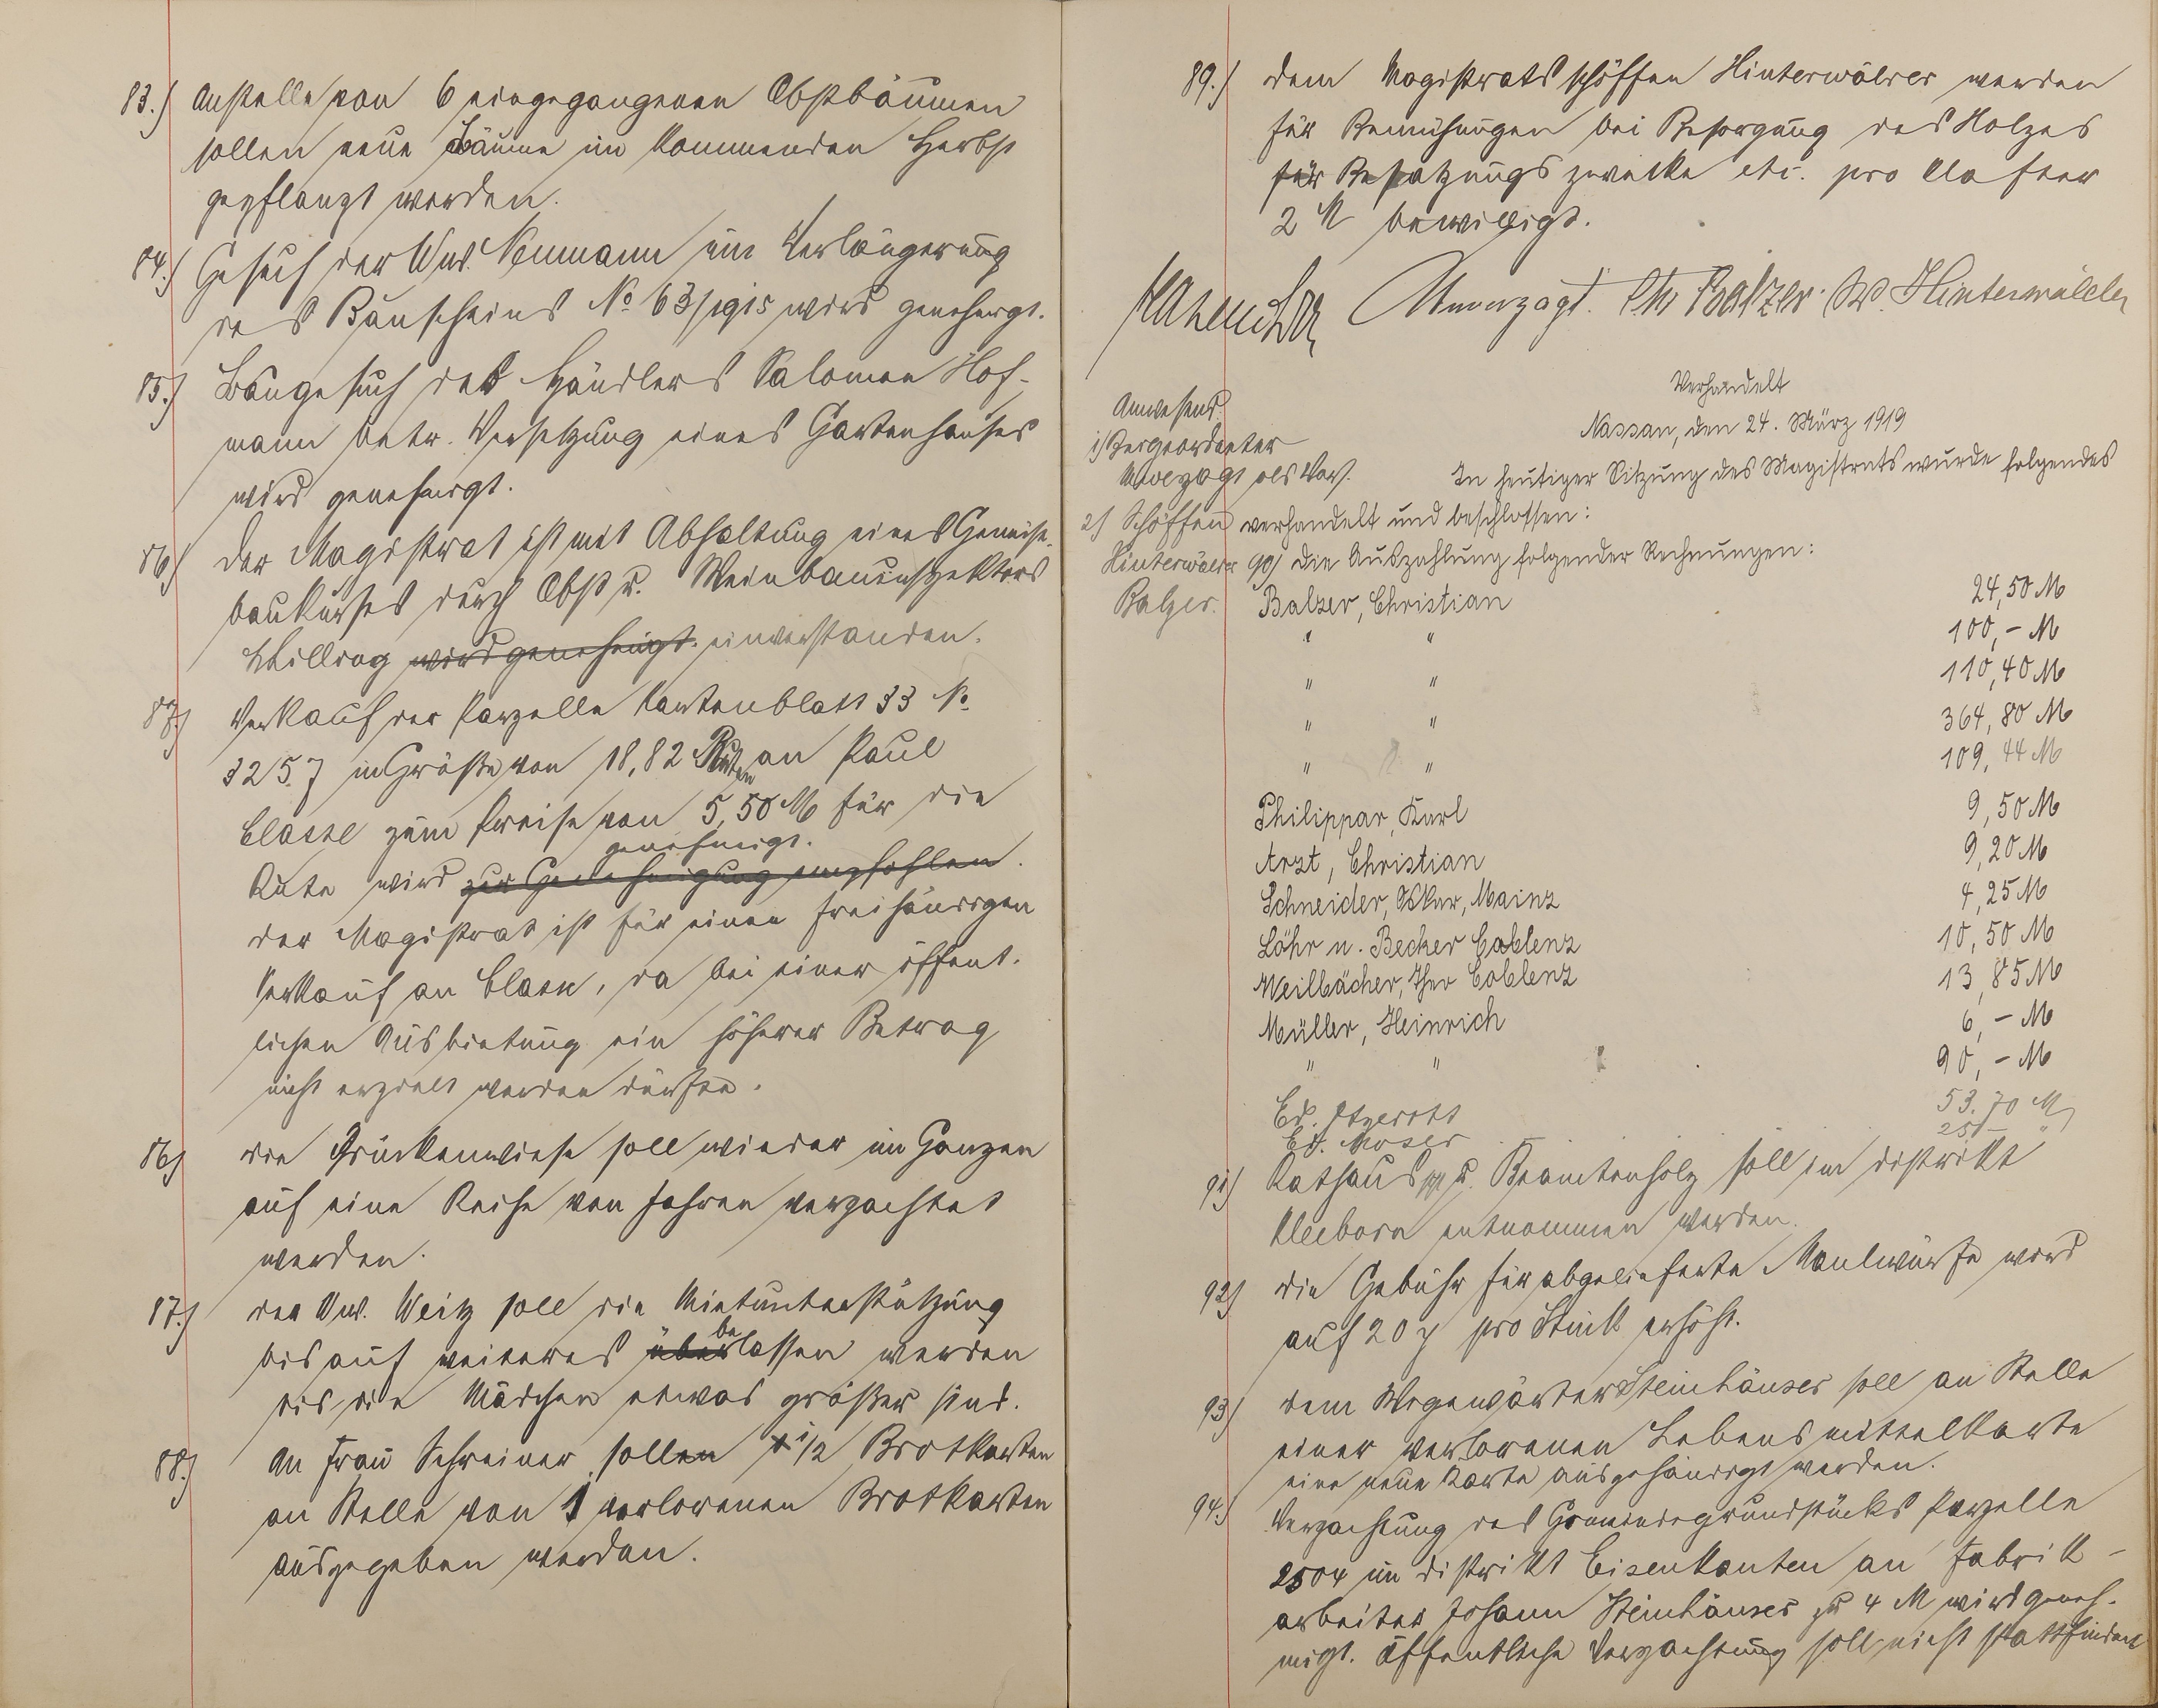 83.) Anstelle von 6 eingegangenen Obstbäumen
sollen neue Bäume im kommenden Herbst
gepflanzt werden.
84.) Gesuch der Ww. Neumann um Verlängerung
des Bauscheins No 63/1915 wird genehmigt.
85.) Baugesuch des Händlers Salomon Hof-
mann betr. Versetzung eines Gartenhauses
wird genehmigt.
86) Der Magistrat ist mit Abhaltung eines Gemüse-
baukurses durch Obst u. Weinbauinspektors
Schilling wird genehmigt. einverstanden.
87) Verkauf der Parzelle Kartenblatt 33 No
3257 in Größe von 18,82 Ruten an Paul
Classe zum Preise von 5,50 M für die
genehmigt.
Rute wird zur Genehmigung empfohlen.
Der Magistrat ist für einen freihändigen
Verkauf an Classe, da bei einer öffent-
lichen Ausbietung ein höherer Betrag
nicht erzielt werden dürfte.
86) Die Brückenwiese soll wieder im Ganzen
auf eine Reihe von Jahren verpachtet
werden.
87.) Der Ww. Weitz soll die Mietunterstützung
be
bis auf weiteres überlassen werden
bis die Mädchen etwas größer sind.
88) An Frau Schreiner sollen 1/2 Brotkarten
an Stelle von 1 verlorenen Brotkarten
ausgegeben werden.
89.) Dem Magistratsschöffen Hinterwälder werden
für Bemühungen bei Besorgung des Holzes
für Besatzungszwecke etc. pro Klafter
2 M bewilligt.
Unverzagt. Chr Balzer. W. Hinterwälder
Verhandelt
Nassau, den 24. März 1919
Anwesend:
1) Beigeordneter
Unverzagt als Vors.
In heutiger Sitzung des Magistrats wurde folgendes
2) Schöffen verhandelt und beschlossen:
Hinterwälder 90) Die Auszahlung folgender Rechnungen:
Balzer. Balzer, Christian 24,50 M
" " 100,- M
" " 110,40 M
" " 364,80 M
" " 109,44 M
Philippar, Karl 9,50 M
Arzt, Christian 9,20 M
Schneider, Oskar, Mainz 4,25 M
Löhr u. Becker Coblenz 10,50 M
Weilbächer, Theo Coblenz 13,85 M
Müller, Heinrich 6,- M
" " 90,- M
Ed. Etzerott 53.70 M
Ed. Moser 251 - "
91) Rathaus u. Beamtenholz soll im Distrikt
Kleeborn entnommen werden.
92) Die Gebühr für abgelieferte Maulwürfe wird
auf 20 ₰ pro Stück erhöht.
93) Dem Wegewärter Steinhäuser soll an Stelle
einer verlorenen Lebensmittelkarte
eine neue Karte ausgehändigt werden.
94.) Verpachtung des Gemeindegrundstücks Parzelle
2504 im Distrikt Eisenkauten an Fabrik-
arbeiter Johann Steinhäuser zu 4 M wird geneh-
migt. Öffentliche Verpachtung soll nicht stattfinden